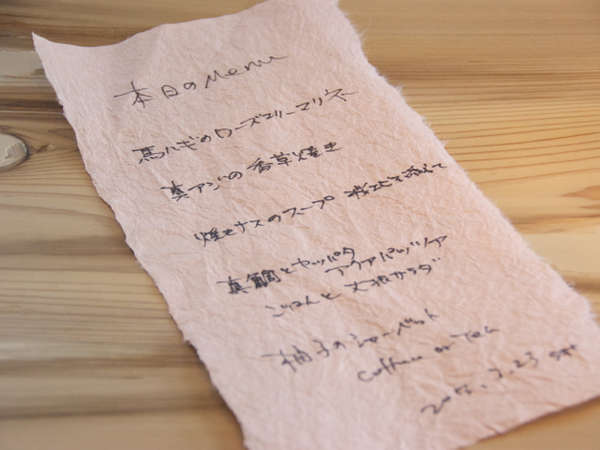 本日のMenu
馬ハギのローズマリーマリネ
真アジの香草焼き
焼きナスのスープ 添えて
真鯛とヤツバタ
アクアパッツア
ごはんと 大根サラダ
柚子のシャーベット
Coffee or Tea
7.23 sat